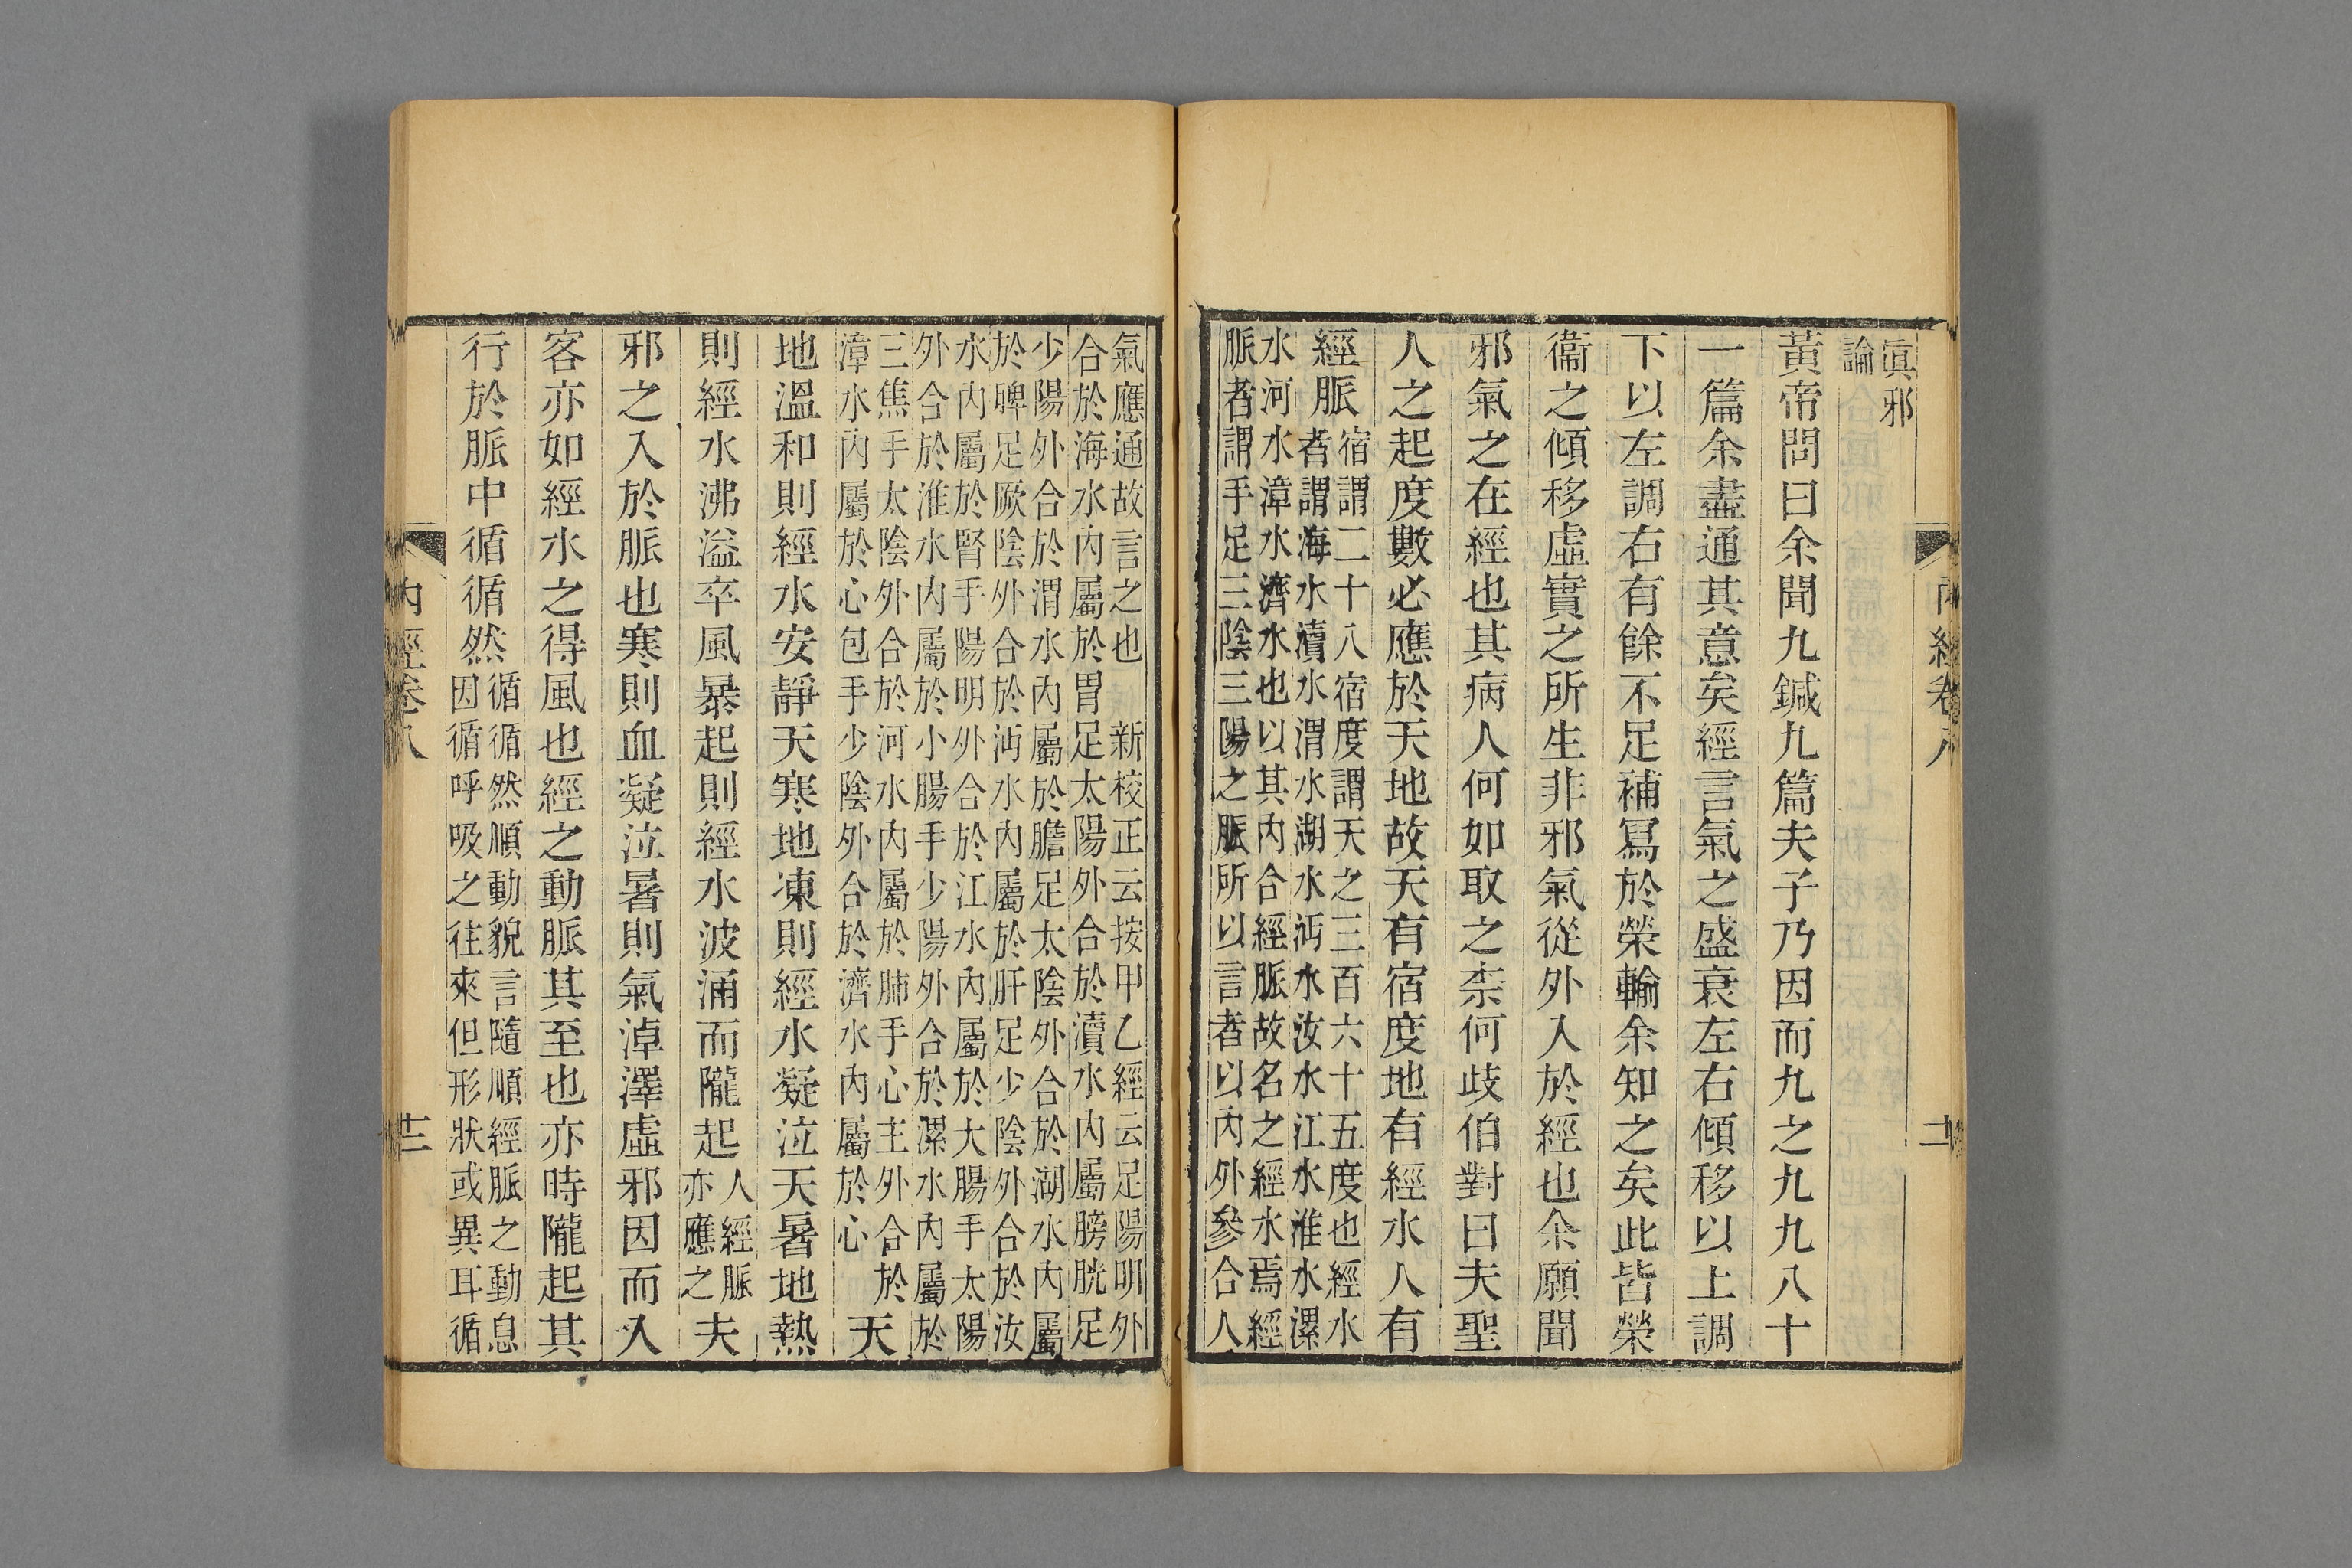 眞邪
論
黃帝問曰余聞九鍼九篇夫子乃因而九之九九八十
一篇余盡通其意矣經言氣之盛衰左右傾移以上調
下以左調右有餘不足補冩於榮輸余知之矣此皆榮
衞之傾移虛實之所生非邪氣從外入於經也余願聞
邪氣之在經也其病人何如取之柰何歧伯對曰夫聖
人之起度數必應於天地故天有宿度地有經水人有
經脈
宿謂二十八宿度謂天之三百六十五度也經水
者謂海水瀆水渭水湖水沔水汝水江水淮水漯
水河水漳水濟水也以其內合經脈故名之經水焉經
脈者謂手足三陰三陽之脈所以言者以內外參合人
氣應通故言之也 新校正云按甲乙經云足陽明外
合於海水內屬於胃足太陽外合於瀆水內屬膀胱足
少陽外合於渭水內屬於膽足太陰外合於湖水內屬
於脾足厥陰外合於沔水內屬於肝足少陰外合於汝
水內屬於腎手陽明外合於江水內屬於大腸手太陽
外合於淮水內屬於小腸手少陽外合於漯水內屬於
三焦手太陰外合於河水內屬於肺手心主外合於
漳水內屬於心包手少陰外合於濟水內屬於心
天
地溫和則經水安靜天寒地凍則經水凝泣天暑地熱
則經水沸溢卒風暴起則經水波涌而隴起
人經脈
亦應之
夫
邪之入於脈也寒則血凝泣暑則氣淖澤虛邪因而入
客亦如經水之得風也經之動脈其至也亦時隴起其
行於脈中循循然
循循然順動貌言隨順經脈之動息
因循呼吸之往來但形狀或異耳循
內經卷八
十二
內經卷八